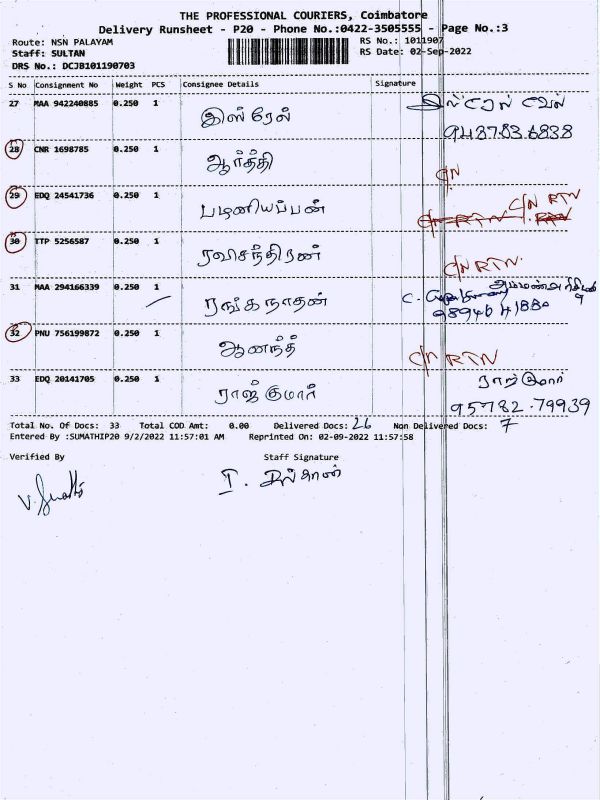 THE PROFESSIONAL COURIERS, Coimbatore
Delivery Runsheet - P20 - Phone No.:0422-3505555 - Page No.:3
Route: NSN PALAYAM
RS No.: 1011907
Staff: SULTAN
RS Date: 02-Sep-2022
DRS No.: DCJB101190703
S No Consignment No Weight PCS Consignee Details Signature
27 MAA 942240885 0.250 1 இஸ்ரேல்
28 CNR 1698785 0.250 1 ஆர்த்தி C/N
29 EDQ 24541736 0.250 1 பழனியப்பன் C/N RTN
30 TTP 5256587 0.250 1 ரவிசந்திரன் C/N RTN.
31 MAA 294166339 0.250 1 ரங்கநாதன்
32 PNU 756199872 0.250 1 ஆனந்த் C/N RTN
33 EDQ 20141705 0.250 1 ராஜ்குமார் ராஜ்குமார்
95782.79939
Total No. Of Docs: 33 Total COD Amt: 0.00 Delivered Docs: 26 Non Delivered Docs: 7
Entered By :SUMATHIP20 9/2/2022 11:57:01 AM Reprinted On: 02-09-2022 11:57:58
Verified By Staff Signature